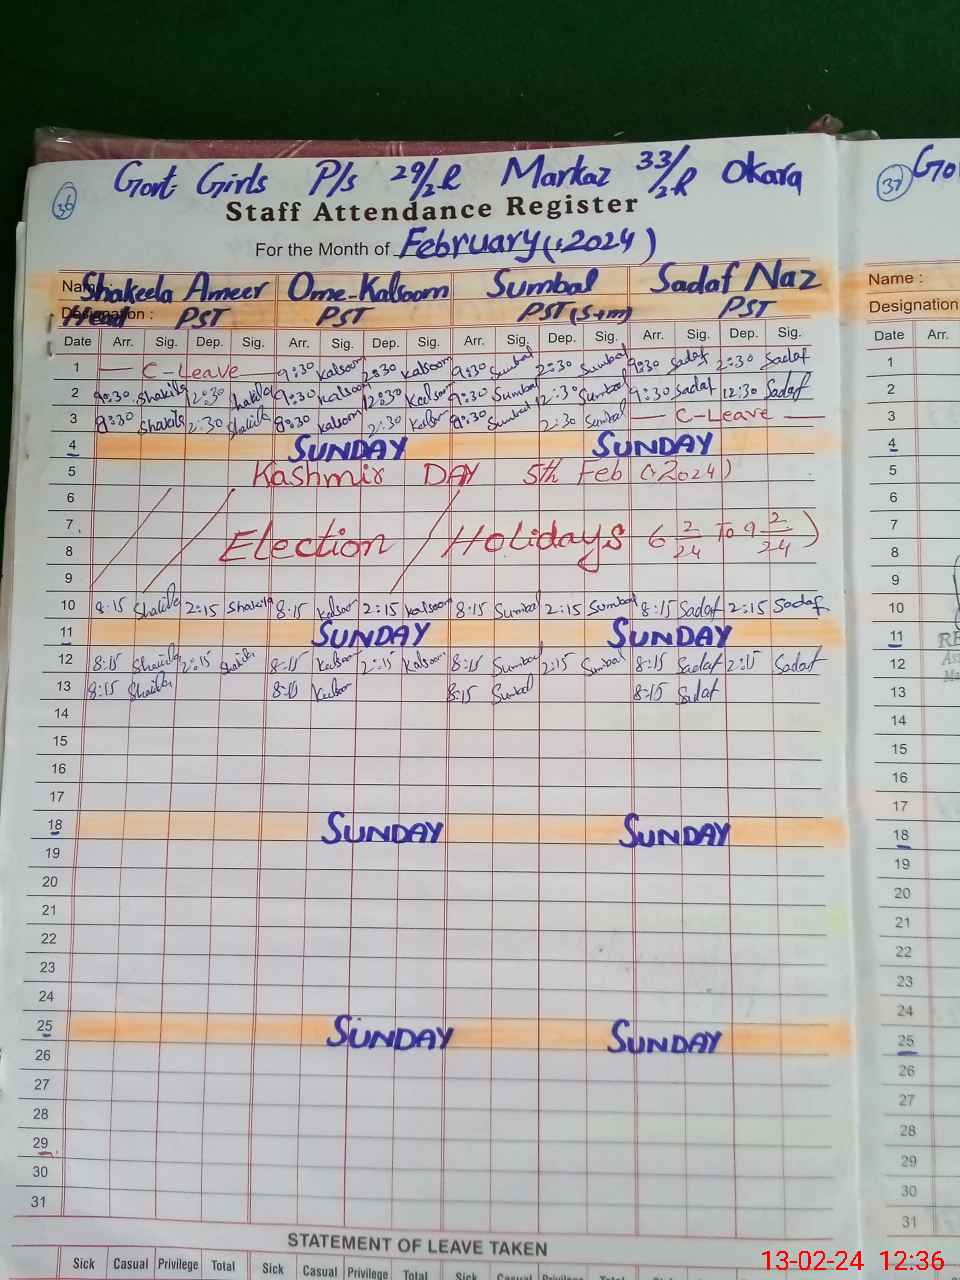 Govt. Girls P/s 29/2.R Markaz 33/2.R Okara
36
Staff Attendance Register
For the Month of February (.2024)
Name : Shakeela Ameer Ome-Kalsoom Sumbal Sadaf Naz
Designation : Head PST PST PST (S+m) PST
Date Arr. Sig. Dep. Sig. Arr. Sig. Dep. Sig. Arr. Sig. Dep. Sig. Arr. Sig. Dep. Sig.
1 C-Leave 9:30 Kalsoom 2:30 Kalsoom 9:30 Sumbal 2:30 Sumbal 9:30 Sadaf 2:30 Sadaf
2 9:30 Shakila 12:30 Shakila 9:30 Kalsoom 12:30 Kalsoom 9:30 Sumbal 12:30 Sumbal 9:30 Sadaf 12:30 Sadaf
3 9:30 Shakila 2:30 Shakila 9:30 Kalsoom 2:30 Kalsoom 9:30 Sumbal 2:30 Sumbal C-Leave
4 SUNDAY SUNDAY
5 Kashmir DAY 5th Feb (.2024)
6
7 Election Holidays 6 2/24 To 9 2/24)
8
9
10 8:15 Shakila 2:15 Shakila 8:15 Kalsoom 2:15 Kalsoom 8:15 Sumbal 2:15 Sumbal 8:15 Sadaf 2:15 Sadaf
11 SUNDAY SUNDAY
12 8:15 Shakila 2:15 Shakila 8:15 Kalsoom 2:15 Kalsoom 8:15 Sumbal 2:15 Sumbal 8:15 Sadaf 2:15 Sadaf
13 8:15 Shakila 8:15 Kalsoom 8:15 Sumbal 8:15 Sadaf
14
15
16
17
18 SUNDAY SUNDAY
19
20
21
22
23
24
25 SUNDAY SUNDAY
26
27
28
29
30
31
STATEMENT OF LEAVE TAKEN
Sick Casual Privilege Total Sick Casual Privilege Total Sick Casual Privilege Total Sick
37
Name :
Designation
Date Arr.
1
2
3
4
5
6
7
8
9
10
11
12
13
14
15
16
17
18
19
20
21
22
23
24
25
26
27
28
29
30
31
13-02-24 12:36